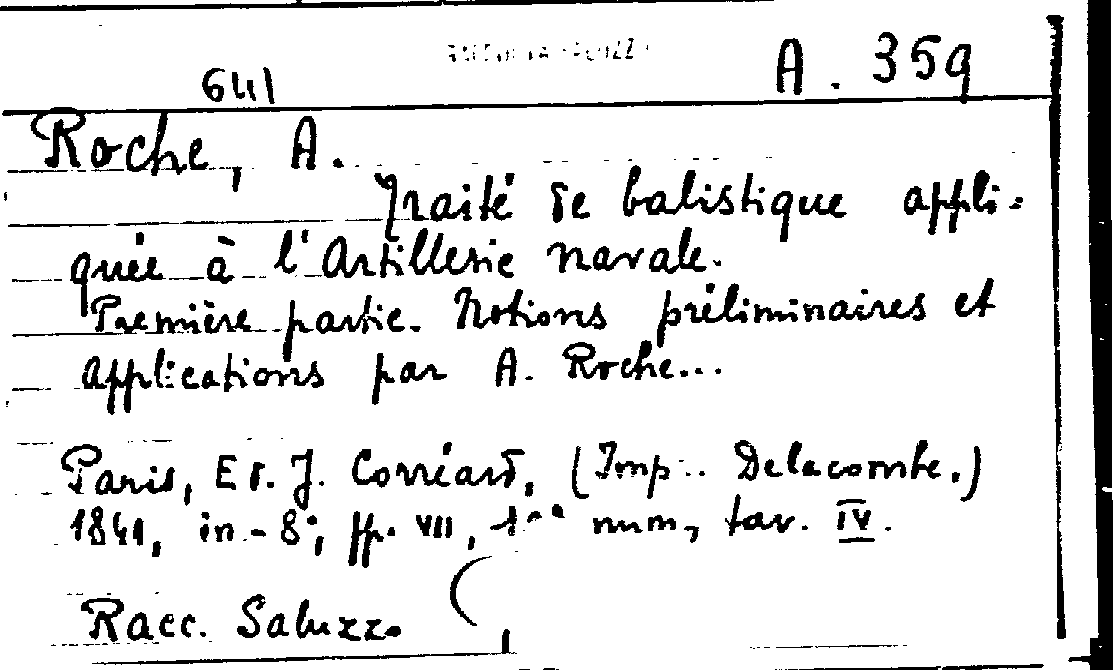 A. 359
641
Roche, A.
Traité de balistique appli=
quée à l'Artillerie navale.
Première partie. Notions préliminaires et
applications par A. Roche...
Paris, Ed. J. Corréard, (Imp. Delacombe.)
1841, in-8°, pp. VII, num, tav. IV.
Racc. Saluzzo